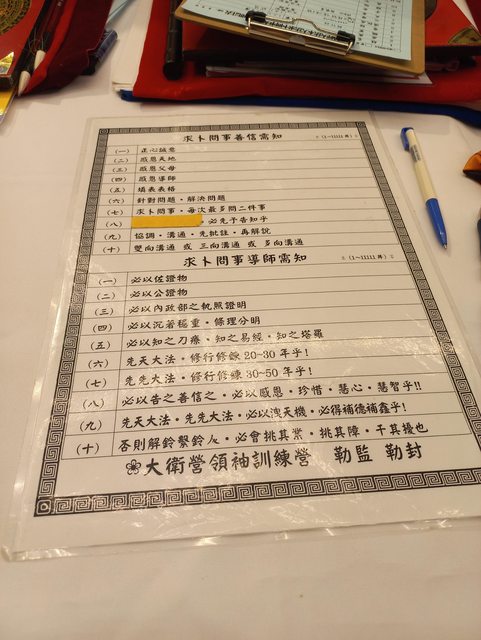 求卜問事善信需知 ※（1～11111 降）※
（一） 正心誠意
（二） 感恩天地
（三） 感恩父母
（四） 感恩導師
（五） 填表表格
（六） 針對問題，解決問題
（七） 求卜問事，每次最多問二件事
（八） ，必先予告知乎
（九） 協調，溝通，先批註，再解說
（十） 雙向溝通 或 三向溝通 或 多向溝通
求卜問事導師需知 ※（1～11111 降）※
（一） 必以佐證物
（二） 必以公證物
（三） 必以內政部之執照證明
（四） 必以沉著穩重，條理分明
（五） 必以知之刀療，知之易經，知之塔羅
（六） 先天大法，修行修鍊 20~30 年乎！
（七） 先先大法，修行修練 30~50 年乎！
（八） 必以告之善信之，必以感恩，珍惜，慧心，慧智乎!!
（九） 先天大法，先先大法，必以洩天機，必得補德補鑫乎！
（十） 否則解鈴繫鈴人，必會挑其業，挑其障，干其擾也
大衛營領袖訓練營 勒監 勒封